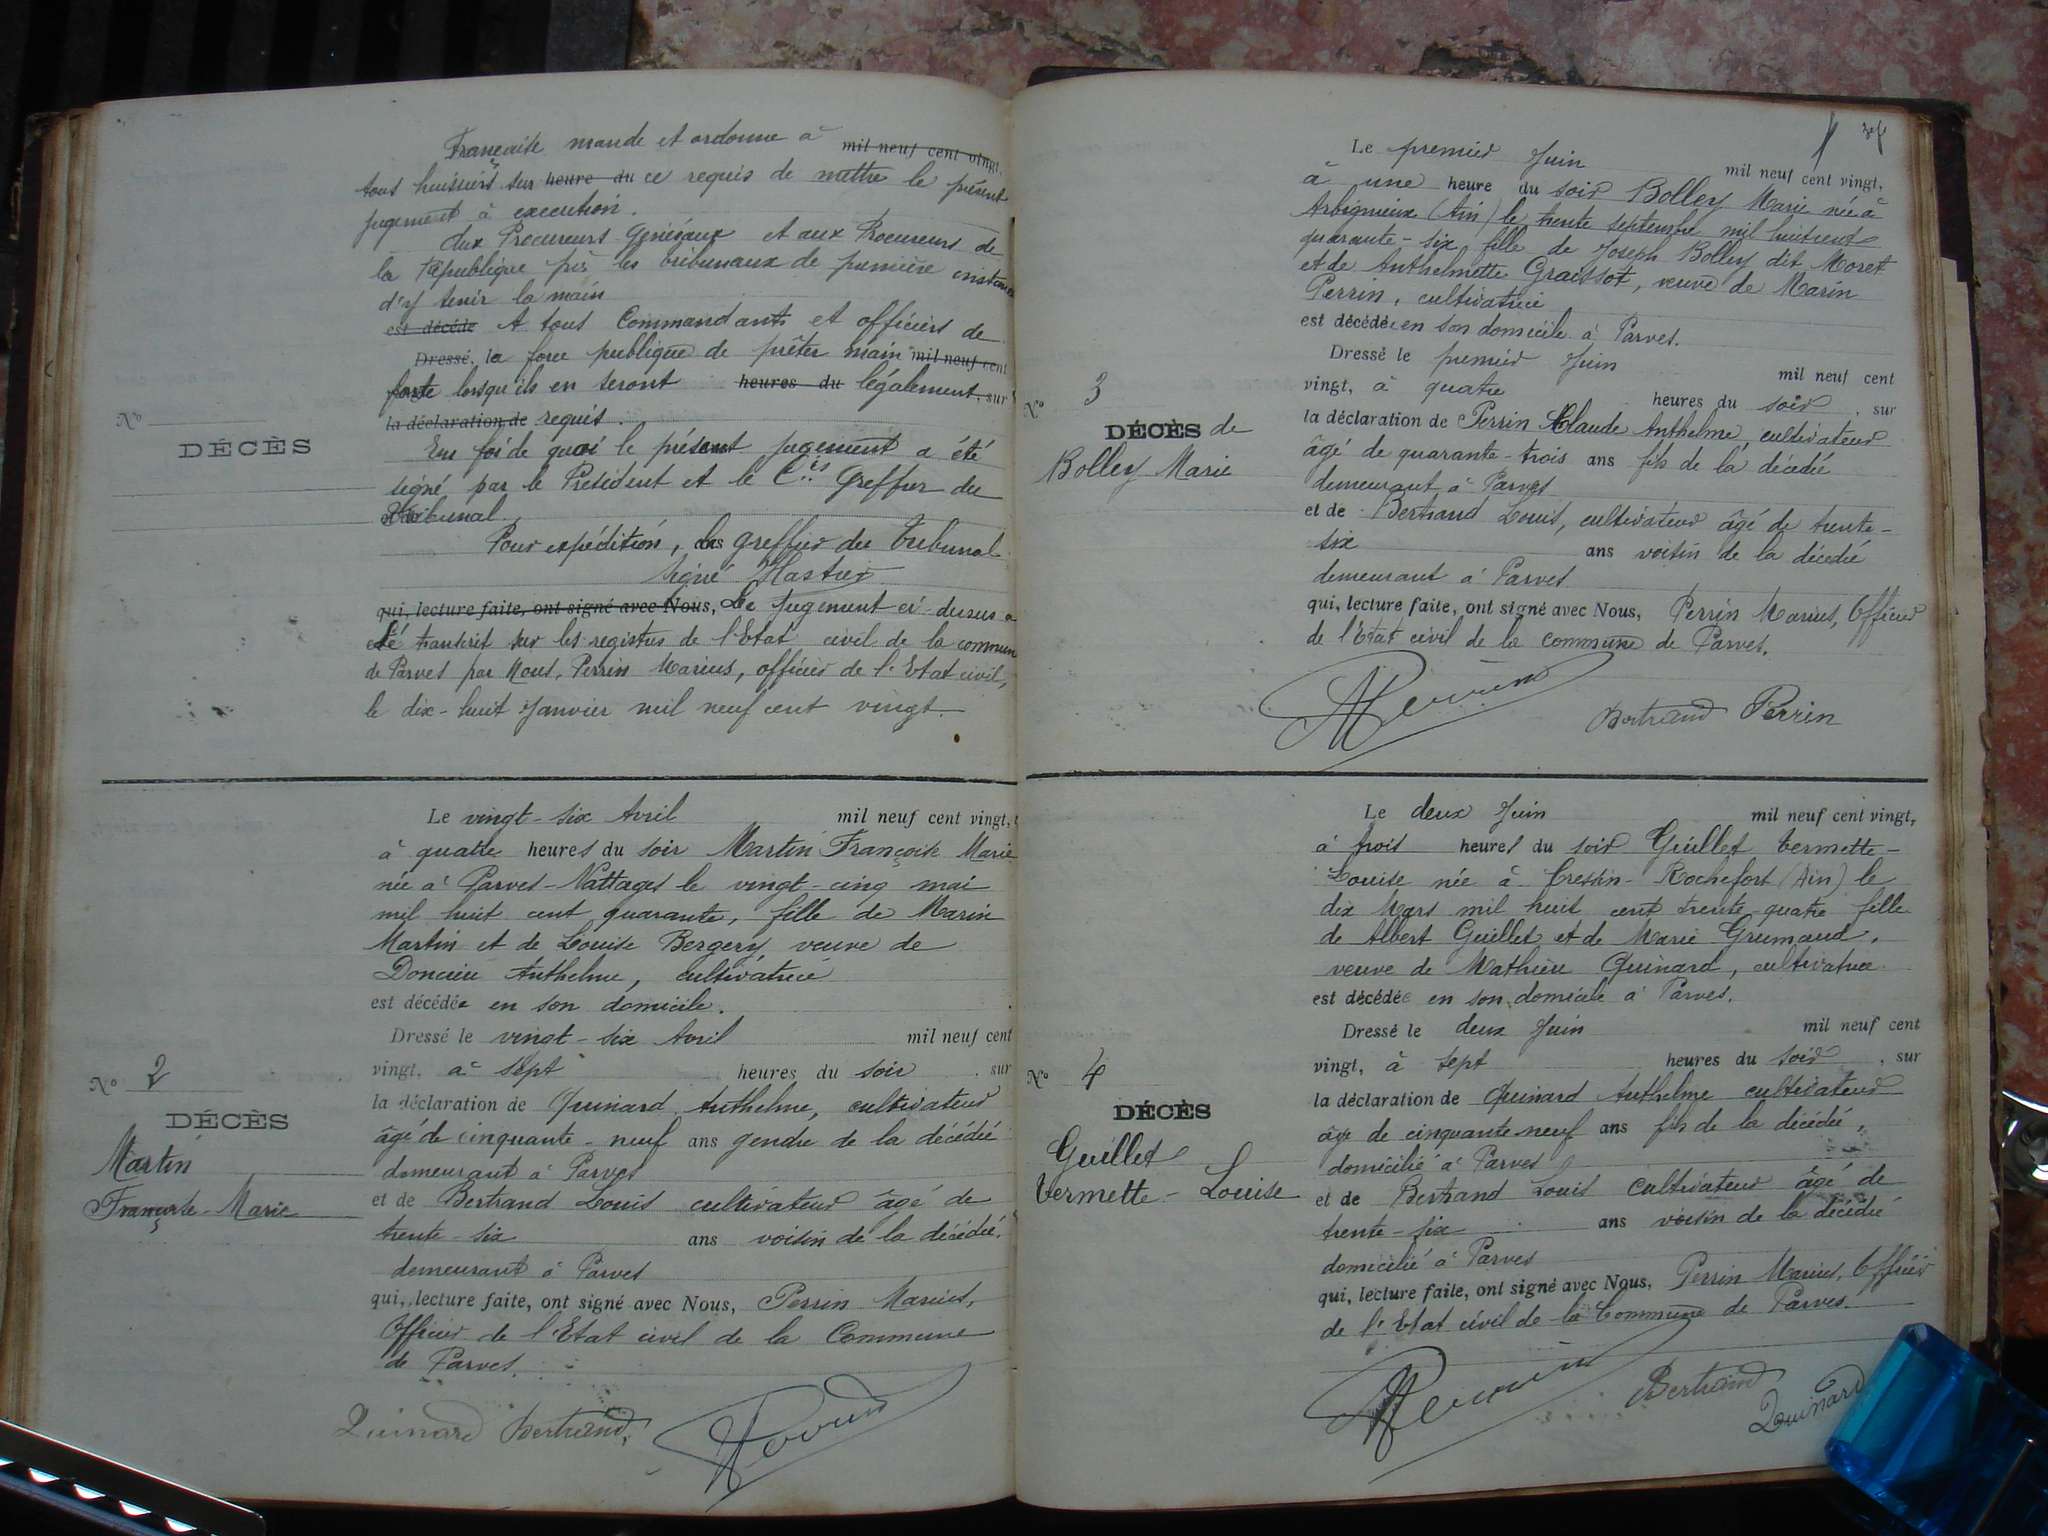 Française mande et ordonne à mil neuf cent vingt,
tous huissiers sur heure du ce requis de mettre le présent
jugement à execution.
Aux Procureurs Généraux et aux Procureurs de
la République près les tribunaux de première instance
d'y tenir la main
est décédé A tous Commandants et officiers de
Dressé, la force publique de prêter main mil neuf cent
forte lorsqu'ils en seront heures du légalement, sur
la déclaration de requis.
En foi de quoi le présent jugement a été
signé par le Président et le Cis Greffier du
tribunal.
Pour expédition, le greffier du tribunal
Signé
qui, lecture faite, ont signé avec Nous, Le jugement ci-dessus a
été transcrit sur les registres de l'Etat civil de la commune
de Parves par Nous, Perrin Marius, officier de l'Etat civil,
le dix-huit Janvier mil neuf cent vingt.
No
DÉCÈS
Le vingt-six Avril mil neuf cent vingt,
à quatre heures du soir Martin Françoise Marie
née à Parves-Nattages le vingt-cinq mai
mil huit cent quarante, fille de Marin
Martin et de Louise Bergery veuve de
Doncieu Anthelme, cultivatrice
est décédée en son domicile.
Dressé le vingt-six Avril mil neuf cent
vingt, à sept heures du soir, sur
la déclaration de Quinard Anthelme, cultivateur
âgé de cinquante-neuf ans gendre de la décédée
demeurant à Parves
et de Bertrand Louis cultivateur âgé de
trente-six ans voisin de la décédée,
demeurant à Parves
qui, lecture faite, ont signé avec Nous, Perrin Marius,
Officier de l'Etat civil de la Commune
de Parves.
No 2
DÉCÈS
Martin
Françoise-Marie
Quinard Bertrand
Perrin
Le premier Juin mil neuf cent vingt,
à une heure du soir Bolley Marie née à
Arbignieux (Ain) le trente septembre mil huit cent
quarante-six, fille de Joseph Bolley dit Moret
et de Anthelmette Graissot, veuve de Marin
Perrin, cultivatrice
est décédée en son domicile à Parves.
Dressé le premier Juin mil neuf cent
vingt, à quatre heures du soir, sur
la déclaration de Perrin Claude Anthelme, cultivateur
âgé de quarante-trois ans fils de la décédée
demeurant à Parves
et de Bertrand Louis, cultivateur âgé de trente-
six ans voisin de la décédée
demeurant à Parves
qui, lecture faite, ont signé avec Nous, Perrin Marius, Officier
de l'Etat civil de la commune de Parves.
No 3
DÉCÈS de
Bolley Marie
Perrin
Bertrand Perrin
Le deux Juin mil neuf cent vingt,
à trois heures du soir Guillet Vermette-
Louise née à Cressin-Rochefort (Ain) le
dix Mars mil huit cent trente-quatre fille
de Albert Guillet et de Marie Grumaud,
veuve de Mathieu Quinard, cultivatrice
est décédée en son domicile à Parves.
Dressé le deux Juin mil neuf cent
vingt, à sept heures du soir, sur
la déclaration de Quinard Anthelme cultivateur
âgé de cinquante neuf ans fils de la décédée,
domicilié à Parves
et de Bertrand Louis cultivateur âgé de
trente-six ans voisin de la décédée
domicilié à Parves
qui, lecture faite, ont signé avec Nous, Perrin Marius, Officier
de l'Etat civil de la Commune de Parves.
No 4
DÉCÈS
Guillet
Vermette-Louise
Perrin
Bertrand
Quinard